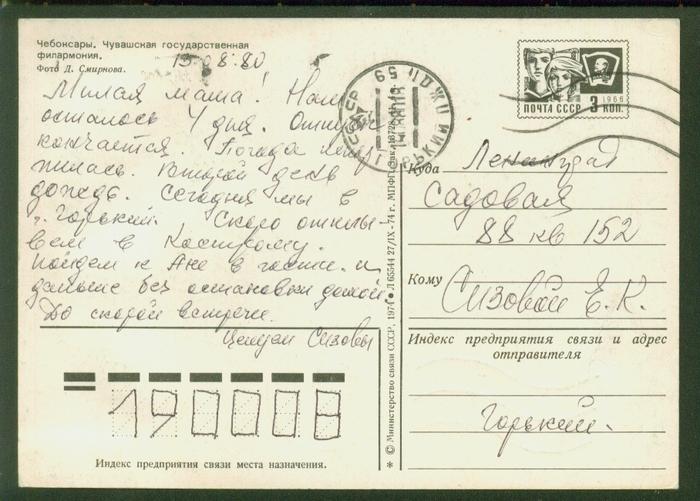 Чебоксары. Чувашская государственная
филармония.
Фото Д. Смирнова.
15 08.80
Милая мама! Нам
осталось 4 дня. Отпуск
кончается. Погода
жилась. Второй день
дождь. Сегодня мы в
г. Горький. Скоро отплы-
вем в Кострому.
Пойдем к Ане в гости. и
дальше без остановки домой.
До скорой встречи.
Целуем Сизовы
190008
Индекс предприятия связи места назначения.
© Министерство связи СССР, 1974 Л 65544 27/IX - 74 г. МПФГ. Зак.
СССР
59
ПОЧТА СССР 3 КОП.
1966
Куда Ленинград
Садовая
88 кв 152
Кому
Сизовой Е. К.
Индекс предприятия связи и адрес
отправителя
Горький.